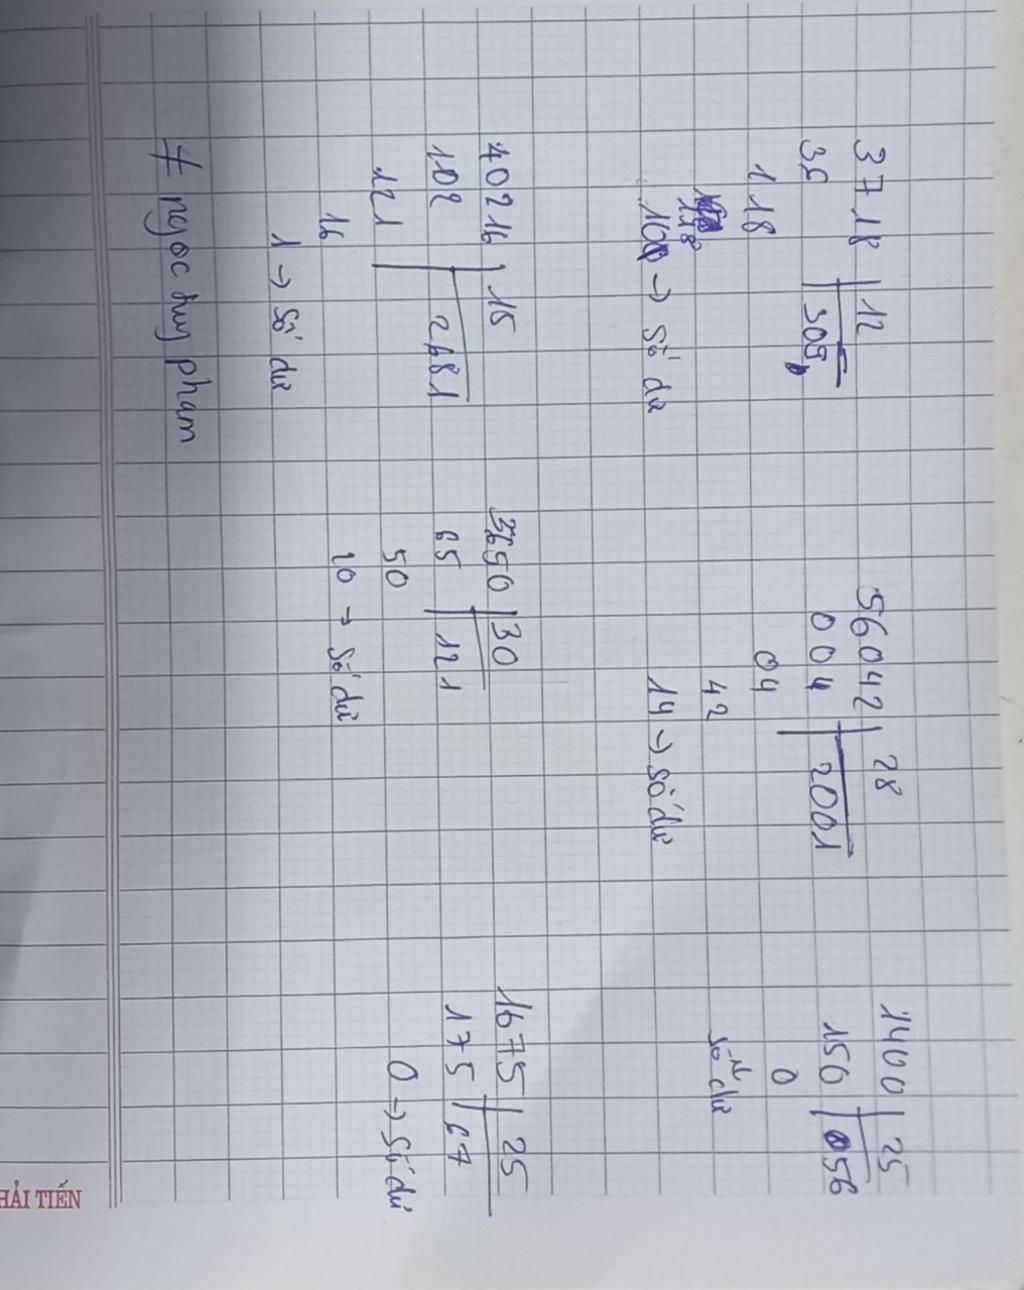 3718 12
35 305
118
118
100 → Số dư
56042 28
004 2001
04
42
14 → Số dư
1400 25
150 056
0
↓
Số dư
40216 15
102 2681
121
16
1 → Số dư
3650 30
65 121
50
20 → Số dư
1675 25
175 67
0 → Số dư
# ngoc huy pham
HẢI TIẾN